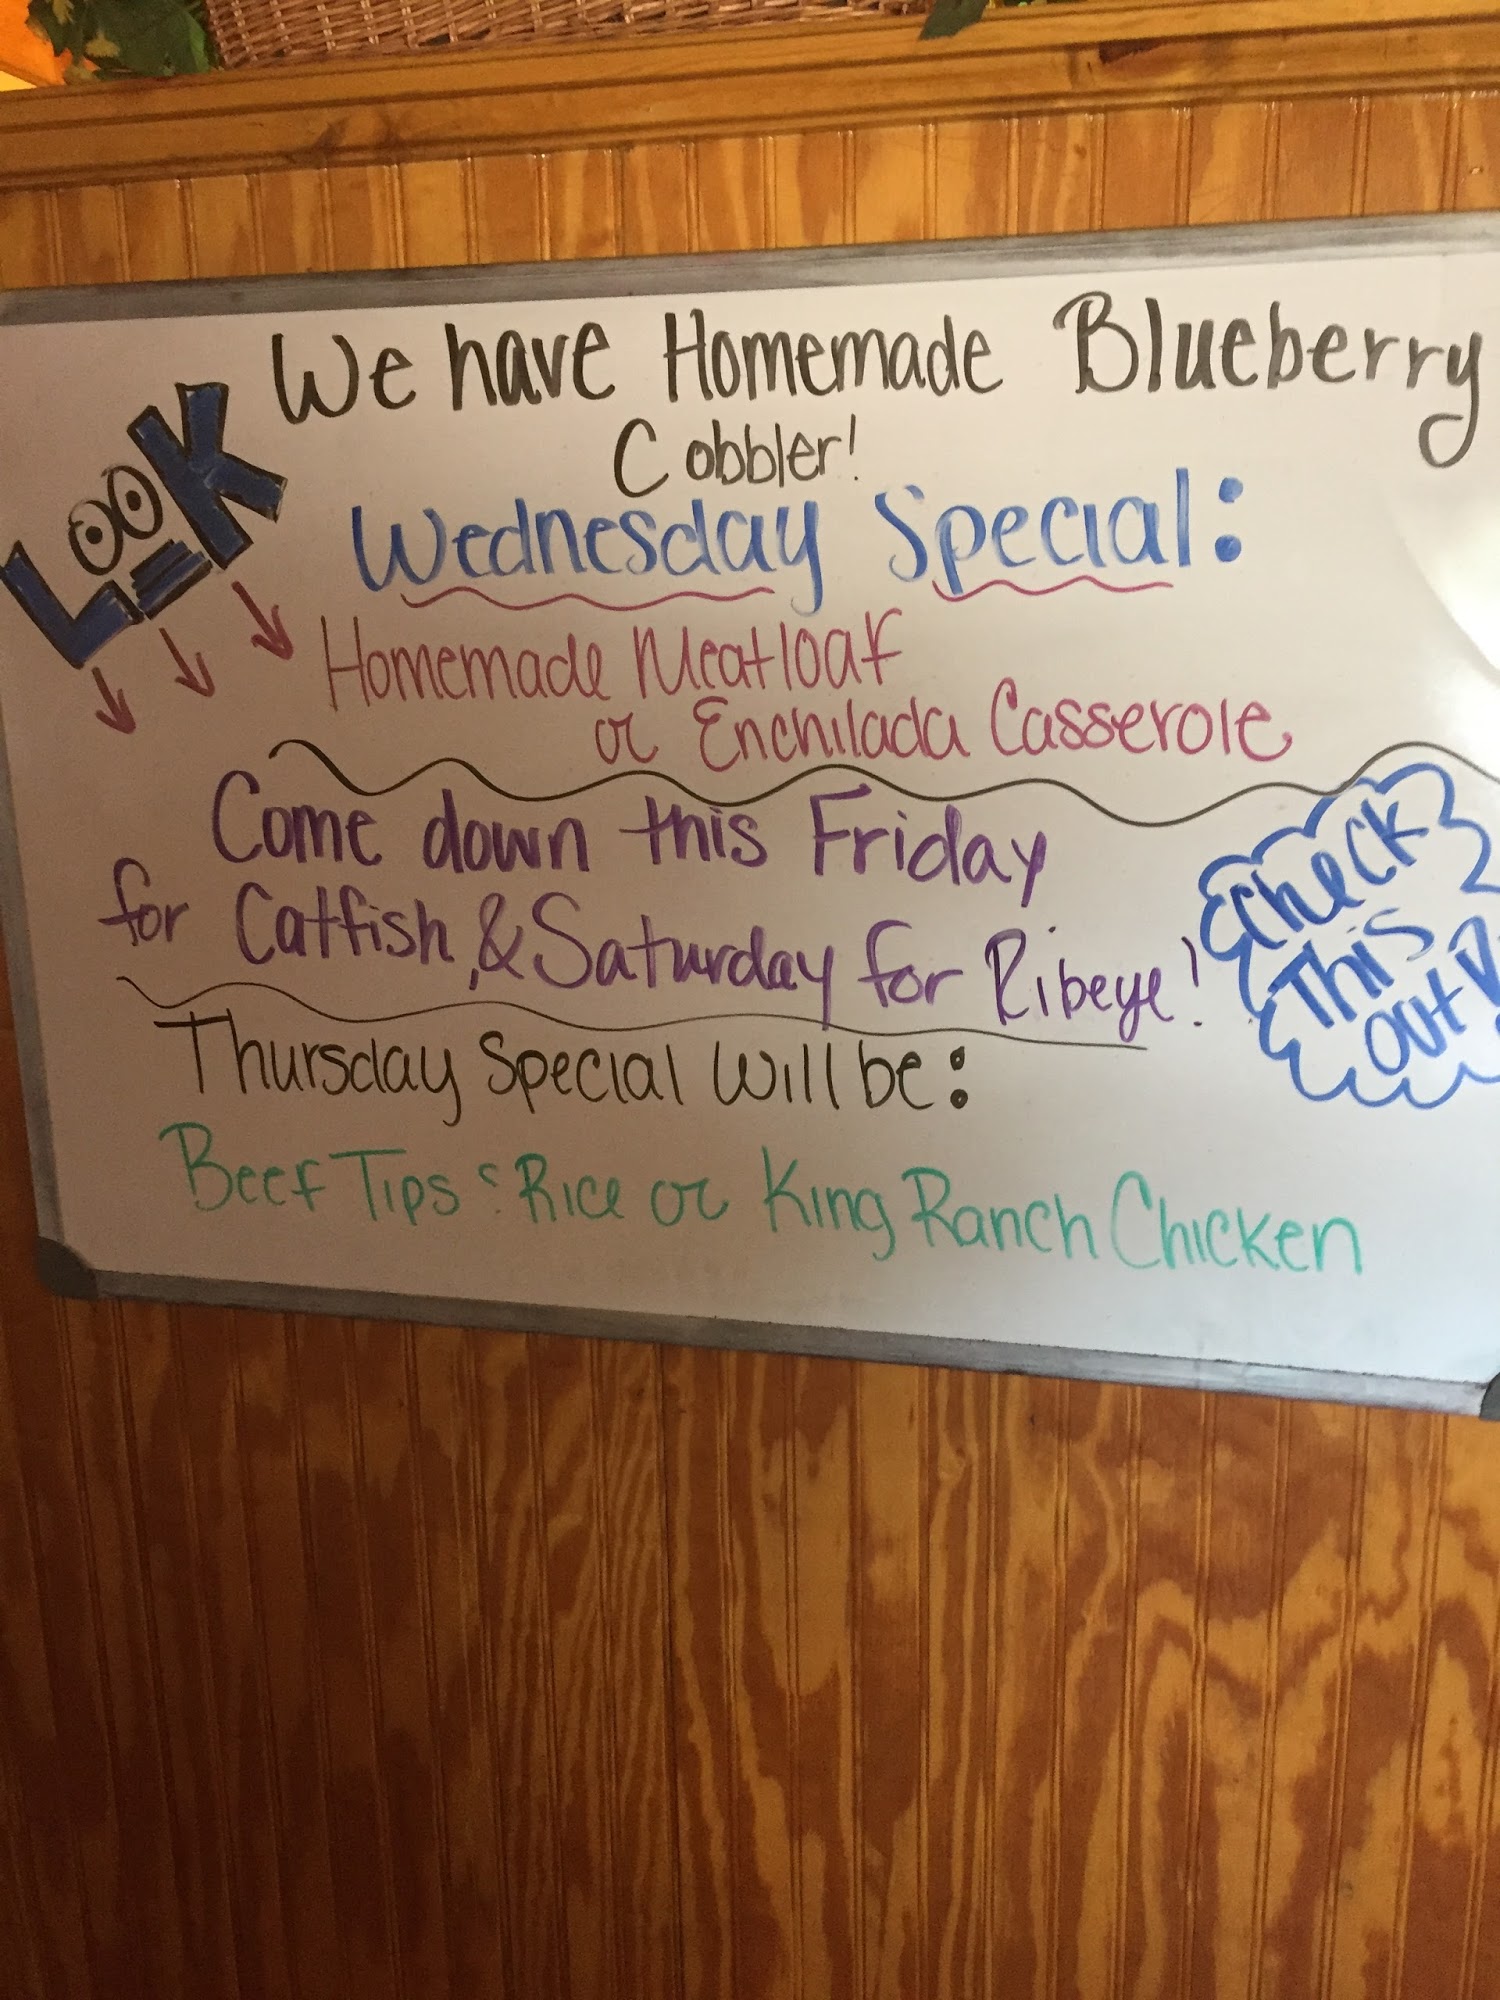 We have Homemade Blueberry
Cobbler!
LOOK
Wednesday Special:
Homemade Meatloaf
or Enchilada Casserole
Come down this Friday
for Catfish, & Saturday for Ribeye!
Check
This
Out
Thursday Special Will be:
Beef Tips & Rice or King Ranch Chicken